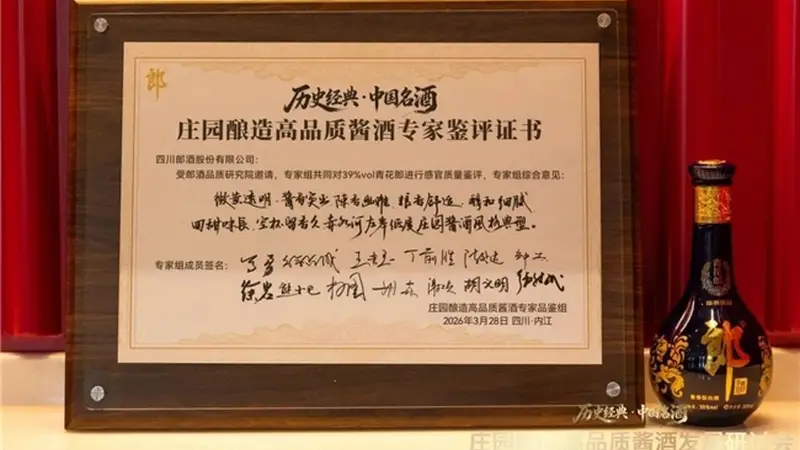 郎
历史经典·中国名酒
庄园酿造高品质酱酒专家鉴评证书
四川郎酒股份有限公司：
受郎酒品质研究院邀请，专家组共同对39%vol青花郎进行感官质量鉴评，专家组综合意见：
微黄透明·酱香突出 陈香幽雅 粮香舒适 醇和细腻
回甜味长 空杯留香久 赤水河左岸低度庄园酱酒风格典型。
专家组成员签名：
徐岩 胡森 胡文明
庄园酿造高品质酱酒专家品鉴组
2026年3月28日 四川·内江
郎
历史经典·中国名酒